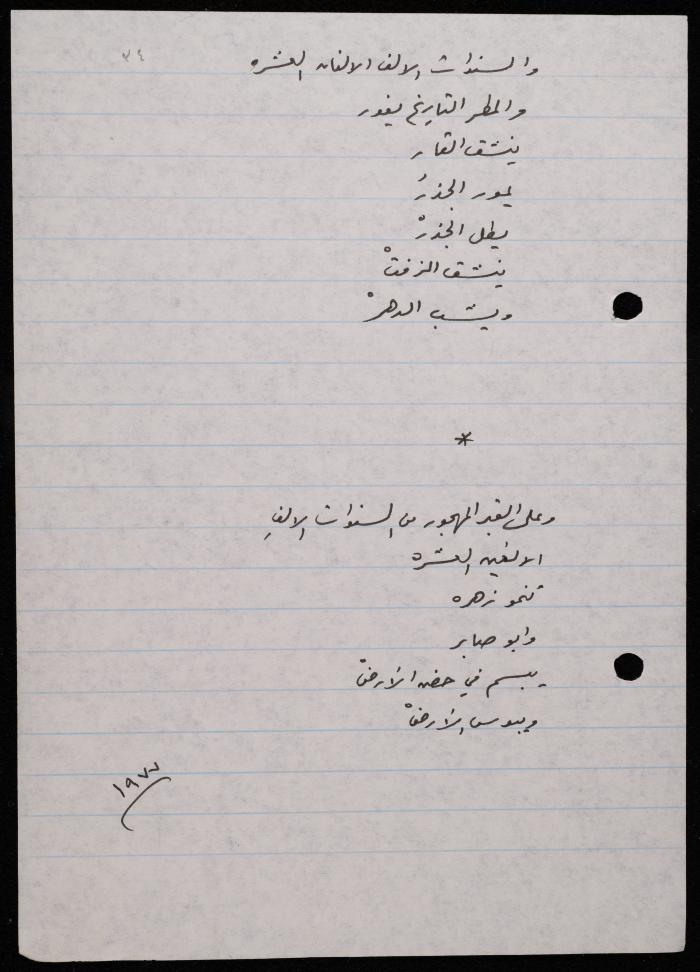 ٣٤
والسنوات الالف الالفان العشره
والمطر التاريخ يغور
ينشق القار
يمور الجذرُ
يطل الجذرْ
ينشق الزفتْ
ويشب الدهرْ
*
وعلى القبر المهجور من السنوات الالفِ
الالفين العشره
تنمو زهره
وابو صابر
يبسم في حضن الأرضْ
ويبوس الأرضْ
١٩٧٧